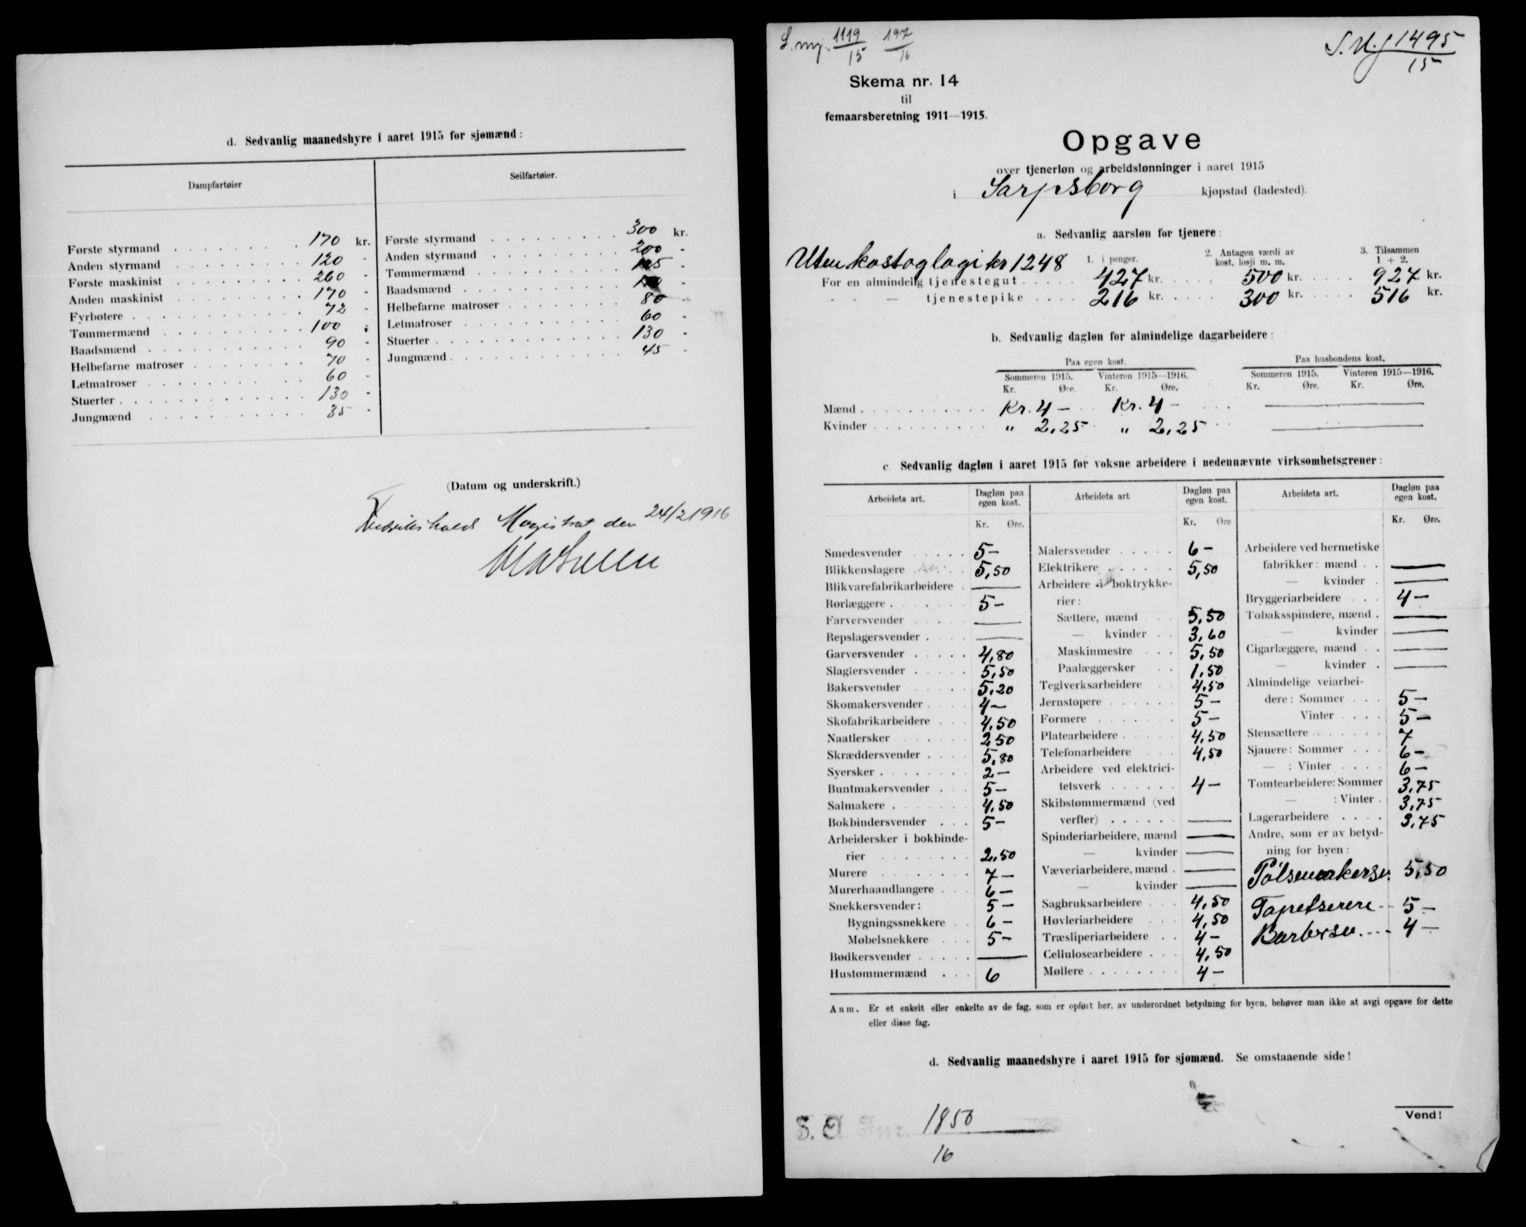 d. Sedvanlig maanedshyre i aaret 1915 for sjømænd:
Dampfartøier
Første styrmand 170 kr.
Anden styrmand 120 -
Første maskinist 260 -
Anden maskinist 170 -
Fyrbøtere 72 -
Tømmermænd 100 -
Baadsmænd 90 -
Helbefarne matroser 70 -
Letmatroser 60 -
Stuerter 130 -
Jungmænd 35 -
Seilfartøier.
Første styrmand 300 kr.
Anden styrmand 200 -
Tømmermænd
Baadsmænd
Helbefarne matroser 80 -
Letmatroser 60 -
Stuerter 130 -
Jungmænd 45 -
(Datum og underskrift.)
Fredrikshalds Magistrat den 24/2 1916
S. nrj. 1119/15 197/16
1495/15
Skema nr. 14
til
femaarsberetning 1911—1915.
Opgave
over tjenerløn og arbeidslønninger i aaret 1915
i Sarpsborg kjøpstad (ladested).
a. Sedvanlig aarsløn for tjenere:
Uten kost og logi kr 1248
1. i penger. 2. Antagen værdi av kost, losji m. m. 3. Tilsammen 1 + 2.
For en almindelig tjenestegut 427 kr. 500 kr. 927 kr.
- - — tjenestepike 216 kr. 300 kr. 516 kr.
b. Sedvanlig dagløn for almindelige dagarbeidere:
Paa egen kost. Paa husbondens kost.
Sommeren 1915. Vinteren 1915—1916. Sommeren 1915. Vinteren 1915—1916.
Kr. Øre. Kr. Øre. Kr. Øre. Kr. Øre.
Mænd Kr. 4 — Kr. 4 — —
Kvinder " 2,25 " 2,25 —
c. Sedvanlig dagløn i aaret 1915 for voksne arbeidere i nedennævnte virksomhetsgrener:
Arbeidets art. Dagløn paa egen kost.
Kr. Øre.
Smedesvender 5 —
Blikkenslagere 5,50
Blikvarefabrikarbeidere —
Rørlæggere 5 —
Farversvender —
Repslagersvender —
Garversvender 4,80
Slagtersvender 5,50
Bakersvender 5,20
Skomakersvender 4 —
Skofabrikarbeidere 4,50
Naatlersker 2,50
Skræddersvender 5,80
Syersker 2 —
Buntmakersvender 5 —
Salmakere 4,50
Bokbindersvender 5 —
Arbeidersker i bokbinde-
rier 2,50
Murere 7 —
Murerhaandlangere 6 —
Snekkersvender: 5 —
Bygningssnekkere 6 —
Møbelsnekkere 5 —
Bødkersvender —
Hustømmermænd 6
Arbeidets art Dagløn paa egen kost.
Kr. Øre
Malersvender 6 —
Elektrikere 5,50
Arbeidere i boktrykke-
rier:
Sættere, mænd 5,50
— kvinder 3,60
Maskinmestre 5,50
Paalæggersker 1,50
Teglverksarbeidere 4,50
Jernstøpere 5 —
Formere 5 —
Platearbeidere 4,50
Telefonarbeidere 4,50
Arbeidere ved elektrici-
tetsverk 4 —
Skibstømmermænd (ved
verfter) —
Spinderiarbeidere, mænd —
— kvinder —
Væveriarbeidere, mænd —
— kvinder —
Sagbruksarbeidere 4,50
Høvleriarbeidere 4,50
Træsliperiarbeidere 4 —
Cellulosearbeidere 4,50
Møllere 4 —
Arbeidets art. Dagløn paa egen kost.
Kr. Øre.
Arbeidere ved hermetiske
fabrikker: mænd —
— kvinder —
Bryggeriarbeidere 4 —
Tobaksspindere, mænd —
— kvinder —
Cigarlæggere, mænd —
— kvinder —
Almindelige veiarbei-
dere: Sommer 5 —
Vinter 5 —
Stensættere 7
Sjauere: Sommer 6 —
— : Vinter 6 —
Tomtearbeidere: Sommer 3,75
— : Vinter 3,75
Lagerarbeidere 3,75
Andre, som er av betyd-
ning for byen:
Pølsemakersv. 5,50
Tapetserere 5 —
Barbersv. 4 —
Anm. Er et enkelt eller enkelte av de fag, som er opført her, av underordnet betydning for byen, behøver man ikke at avgi opgave for dette
eller disse fag.
d. Sedvanlig maanedshyre i aaret 1915 for sjømænd. Se omstaaende side!
Vend!
1850
16